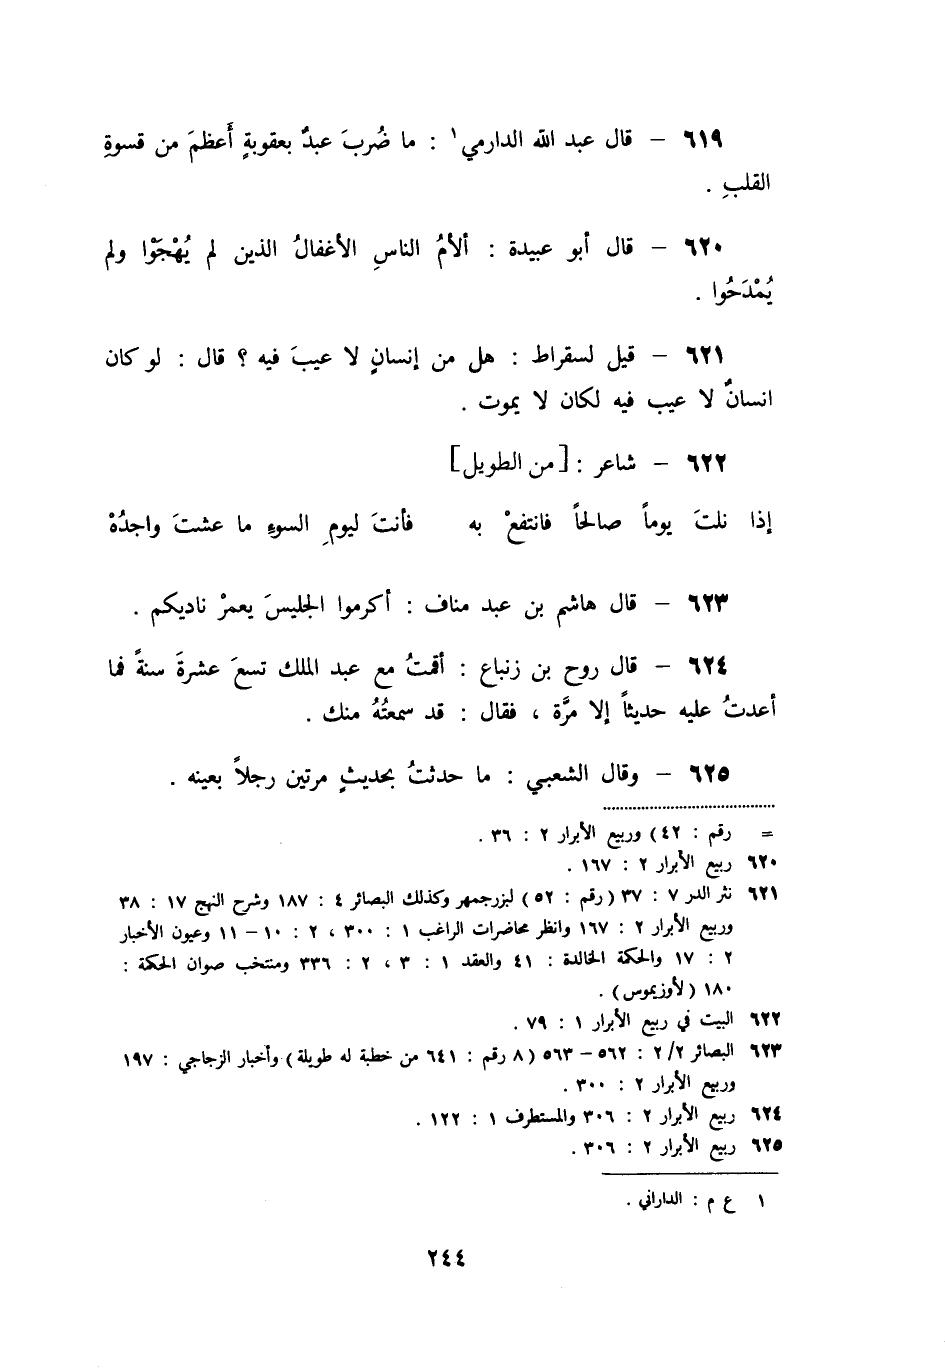 ٦١٩ – قال عبد الله الدارمي١ : ما ضُربَ عبدٌ بعقوبةٍ أَعظمَ من قسوةِ
القلبِ .
٦٢٠ – قال أبو عبيدة : ألأمُ الناسِ الأغفالُ الذين لم يُهْجَوْا ولم
يُمْدَحُوا .
٦٢١ – قيل لسقراط : هل من إنسانٍ لا عيبَ فيه ؟ قال : لو كان
انسانٌ لا عيب فيه لكان لا يموت .
٦٢٢ – شاعر : [من الطويل]
إذا نلتَ يوماً صالحاً فانتفعْ به فأنتَ ليومِ السوءِ ما عشتَ واجدُهْ
٦٢٣ – قال هاشم بن عبد مناف : أكرموا الجليسَ يعمرْ ناديكم .
٦٢٤ – قال روح بن زنباع : أقمتُ مع عبد الملك تسعَ عشرةَ سنةً فما
أعدتُ عليه حديثاً إلا مرَّة ، فقال : قد سمعتُهُ منك .
٦٢٥ – وقال الشعبي : ما حدثتُ بحديثٍ مرتين رجلاً بعينه .
= رقم : ٤٢) وربيع الأبرار ٢ : ٣٦ .
٦٢٠ ربيع الأبرار ٢ : ١٦٧ .
٦٢١ نثر الدر ٧ : ٣٧ (رقم : ٥٢) لبزرجمهر وكذلك البصائر ٤ : ١٨٧ وشرح النهج ١٧ : ٣٨
وربيع الأبرار ٢ : ١٦٧ وانظر محاضرات الراغب ١ : ٣٠٠ ، ٢ : ١٠ – ١١ وعيون الأخبار
٢ : ١٧ والحكمة الخالدة : ٤١ والعقد ١ : ٣ ، ٢ : ٣٣٦ ومنتخب صوان الحكمة :
١٨٠ (لأوزيموس) .
٦٢٢ البيت في ربيع الأبرار ١ : ٧٩ .
٦٢٣ البصائر ٢/٢ : ٥٦٢ – ٥٦٣ (٨ رقم : ٦٤١ من خطبة له طويلة) وأخبار الزجاجي : ١٩٧
وربيع الأبرار ٢ : ٣٠٠ .
٦٢٤ ربيع الأبرار ٢ : ٣٠٦ والمستطرف ١ : ١٢٢ .
٦٢٥ ربيع الأبرار ٢ : ٣٠٦ .
١ ع م : الداراني .
٢٤٤